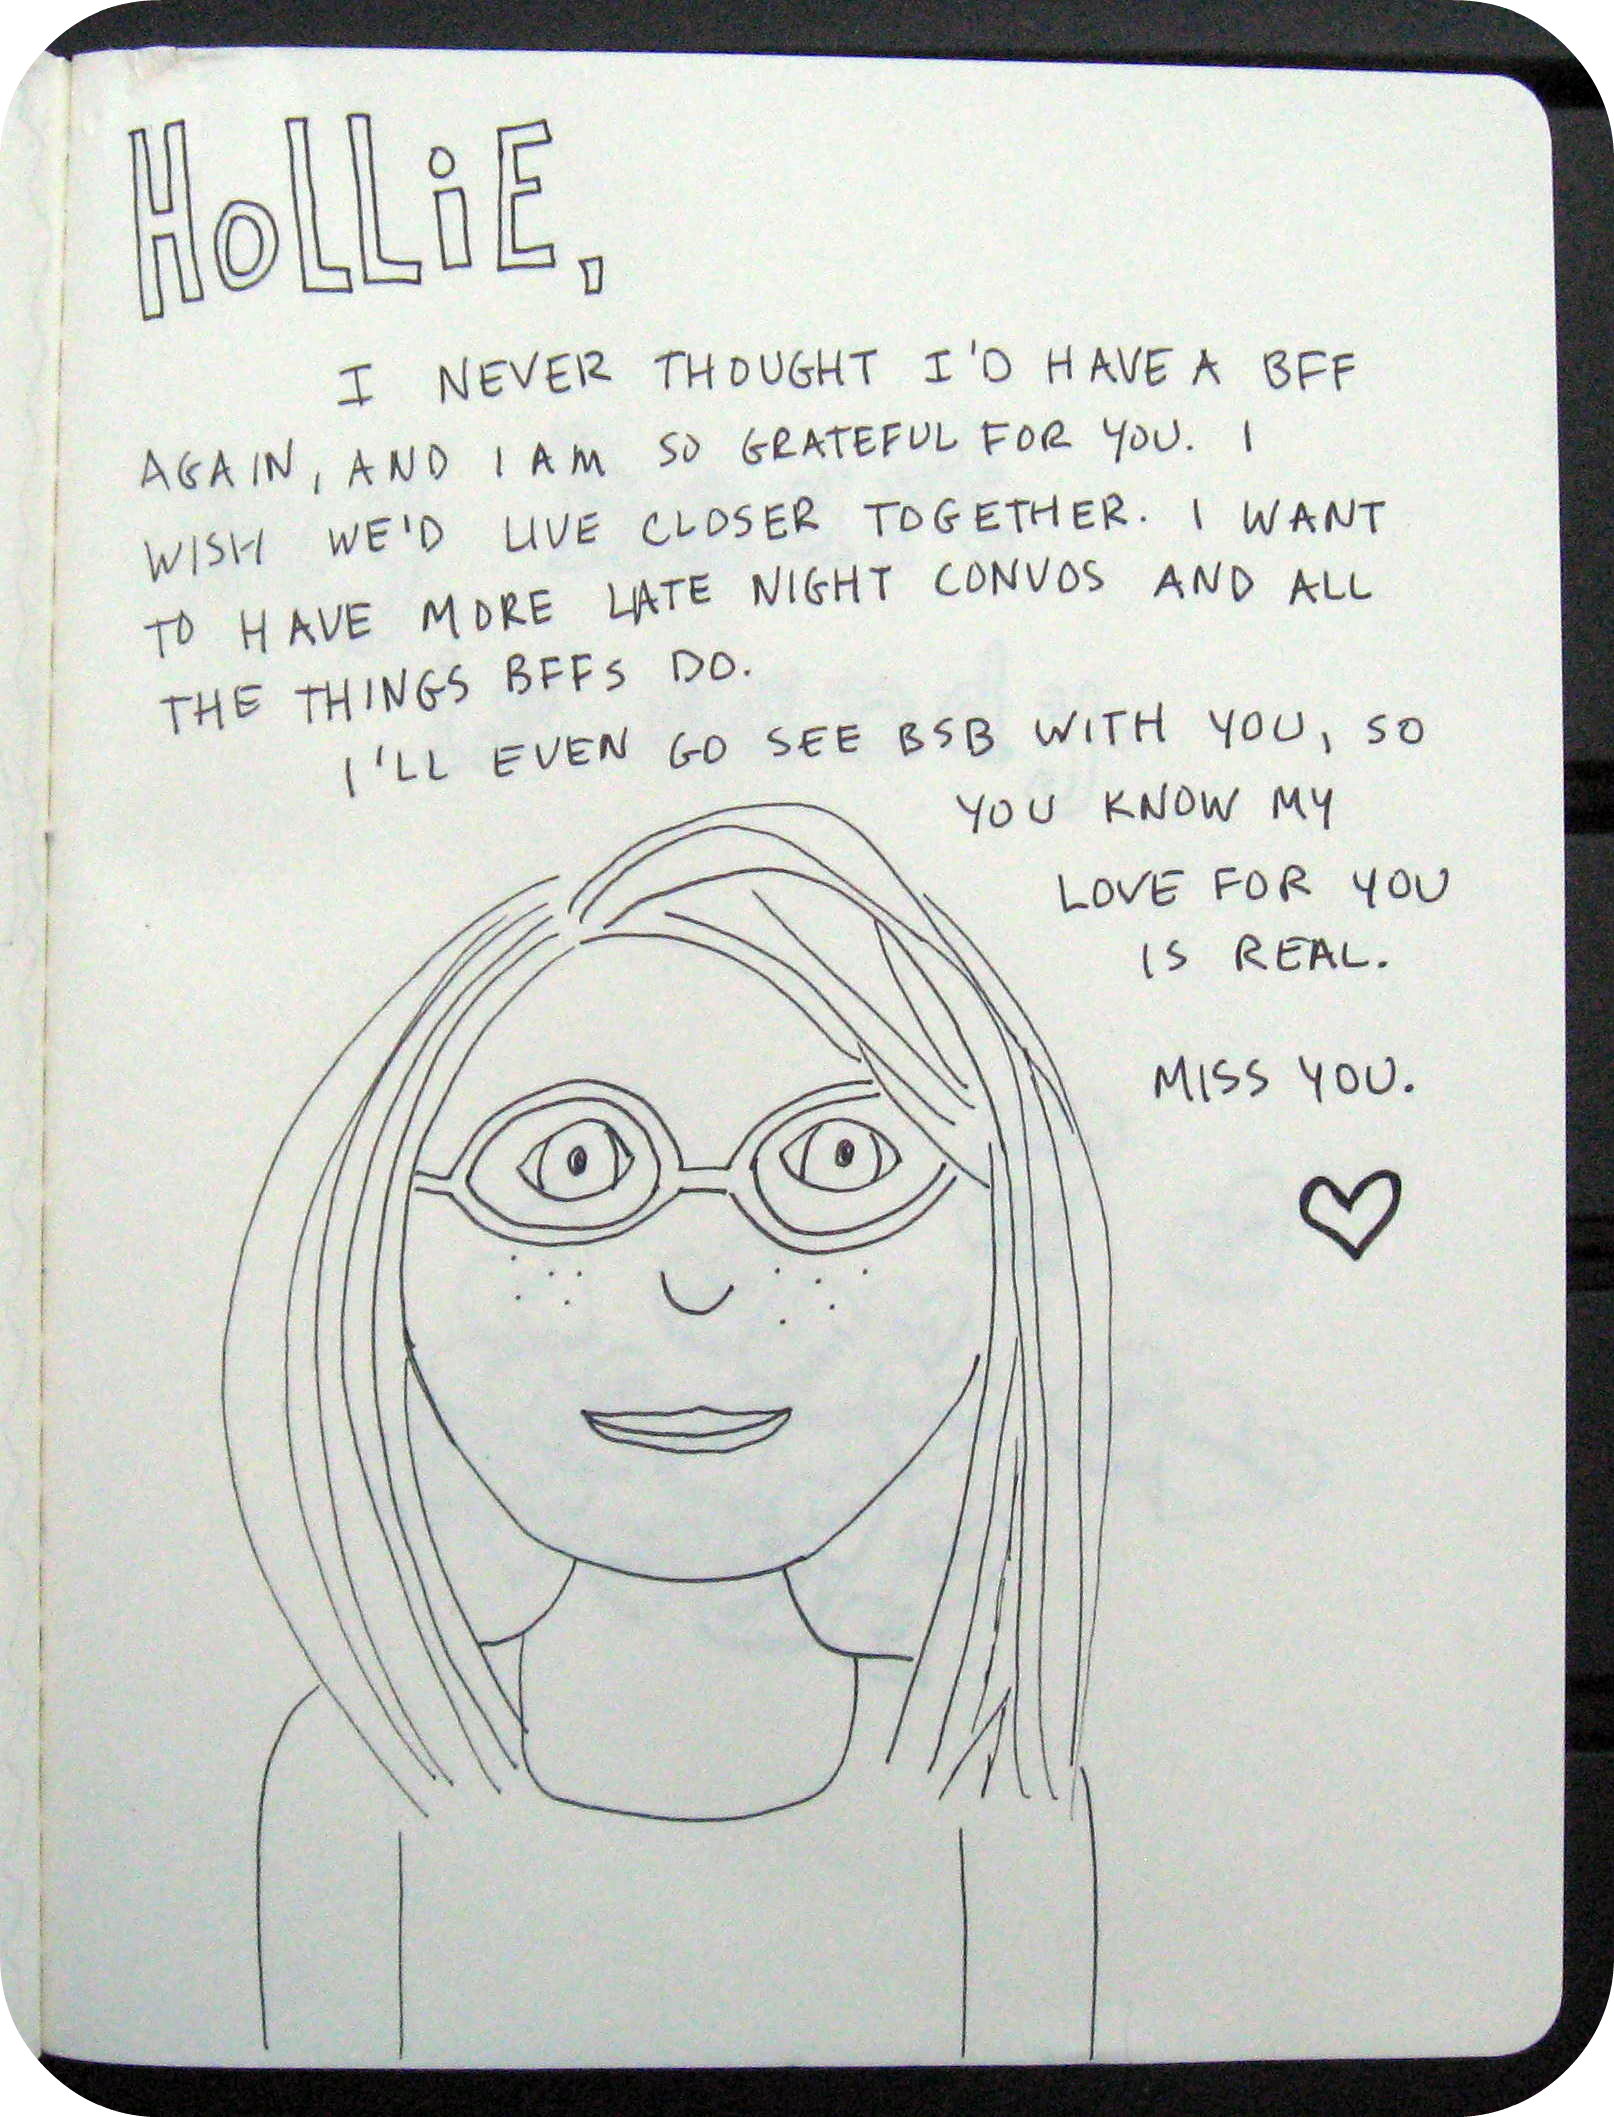 HOLLiE,
I NEVER THOUGHT I'D HAVE A BFF
AGAIN, AND I AM SO GRATEFUL FOR YOU. I
WISH WE'D LIVE CLOSER TOGETHER. I WANT
TO HAVE MORE LATE NIGHT CONVOS AND ALL
THE THINGS BFFS DO.
I'LL EVEN GO SEE BSB WITH YOU, SO
YOU KNOW MY
LOVE FOR YOU
IS REAL.
MISS YOU.